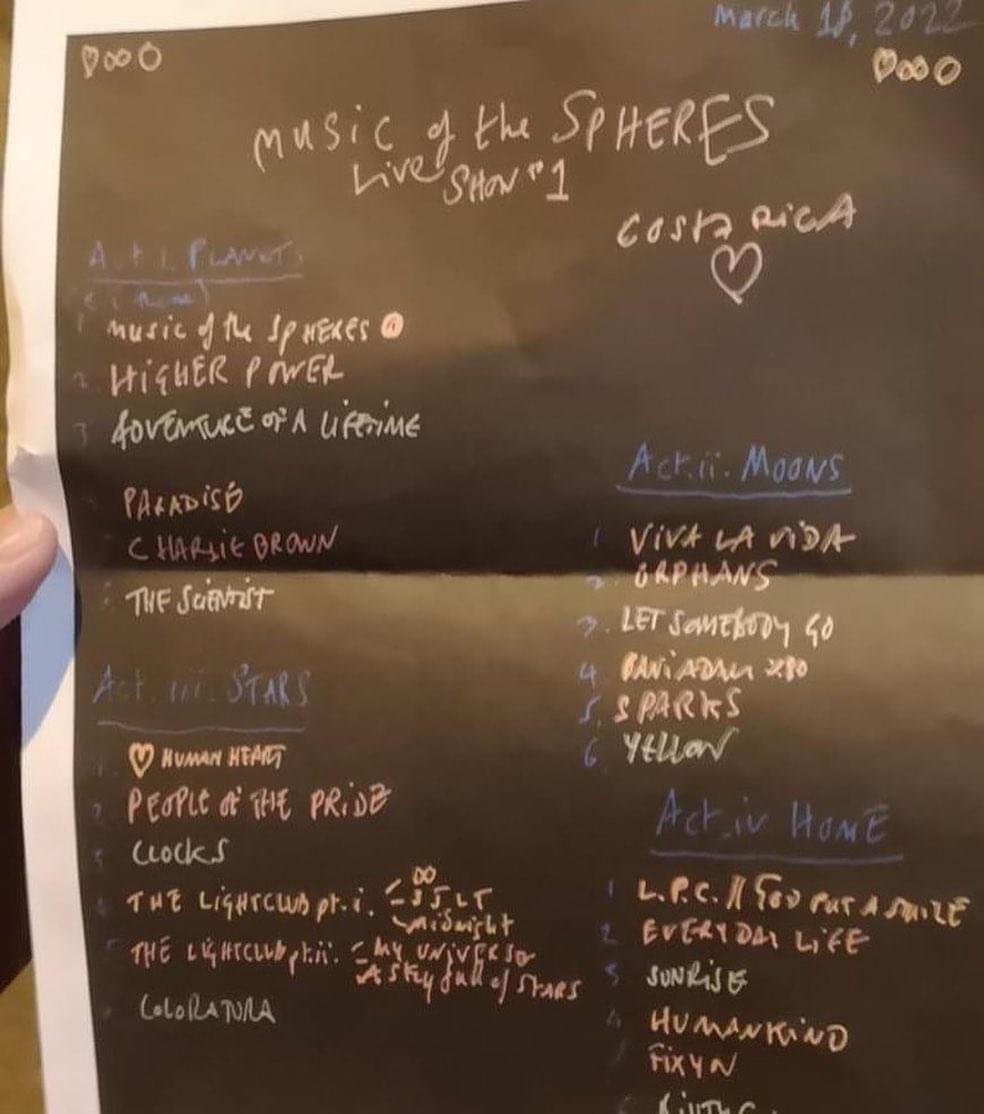 March 18, 2022
♡∞○
♡∞○
music of the SPHERES
Live SHOW #1
COSTA RICA
♡
Act i. PLANETS
1 music of the SPHERES
2 HIGHER POWER
3 ADVENTURE OF A LIFETIME
PARADISE
CHARLIE BROWN
THE SCIENTIST
Act. ii. MOONS
1 VIVA LA VIDA
2. ORPHANS
3. LET SOMEBODY GO
4 BANI ADAM
5. SPARKS
6 YELLOW
Act. iii. STARS
1. ♡ HUMAN HEART
2 PEOPLE OF THE PRIDE
3 CLOCKS
THE LIGHTCLUB pt.i. - SJLT
∞
midnight
THE LIGHTCLUB pt.ii. - MY UNIVERSE
A Sky full of STARS
COLORATURA
Act. iv HOME
1 L.P.C. // GOD PUT A SMILE
2 EVERYDAY LIFE
3 SUNRISE
4 HUMANKIND
FIX YN